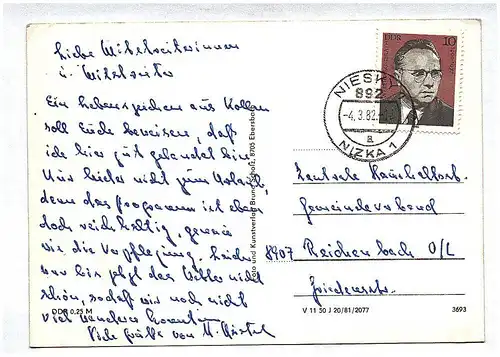 Liebe Mitstreiterinnen
u. Mitstreiter
Ein Lebenszeichen aus Kollm
soll Euch beweisen, daß
ich hier gut gelandet bin.
Nur leider nicht zum Urlaub,
denn das Programm ist eben
doch reichhaltig, genau
wie die Verpflegung. Leider
war bis jetzt das Wetter nicht
schön, sodaß wir noch nicht
viel wandern konnten.
Viele Grüße von M.
DDR 0,25 M
Foto und Kunstverlag Brück & Sohn, 8705 Ebersbach
DDR
10
NIESKY
892
-4.3.82
a
NIZKA 1
Deutsche
Gemeindeverband
8907 Reichenbach O/L
V 11 50 J 20/81/2077
3693